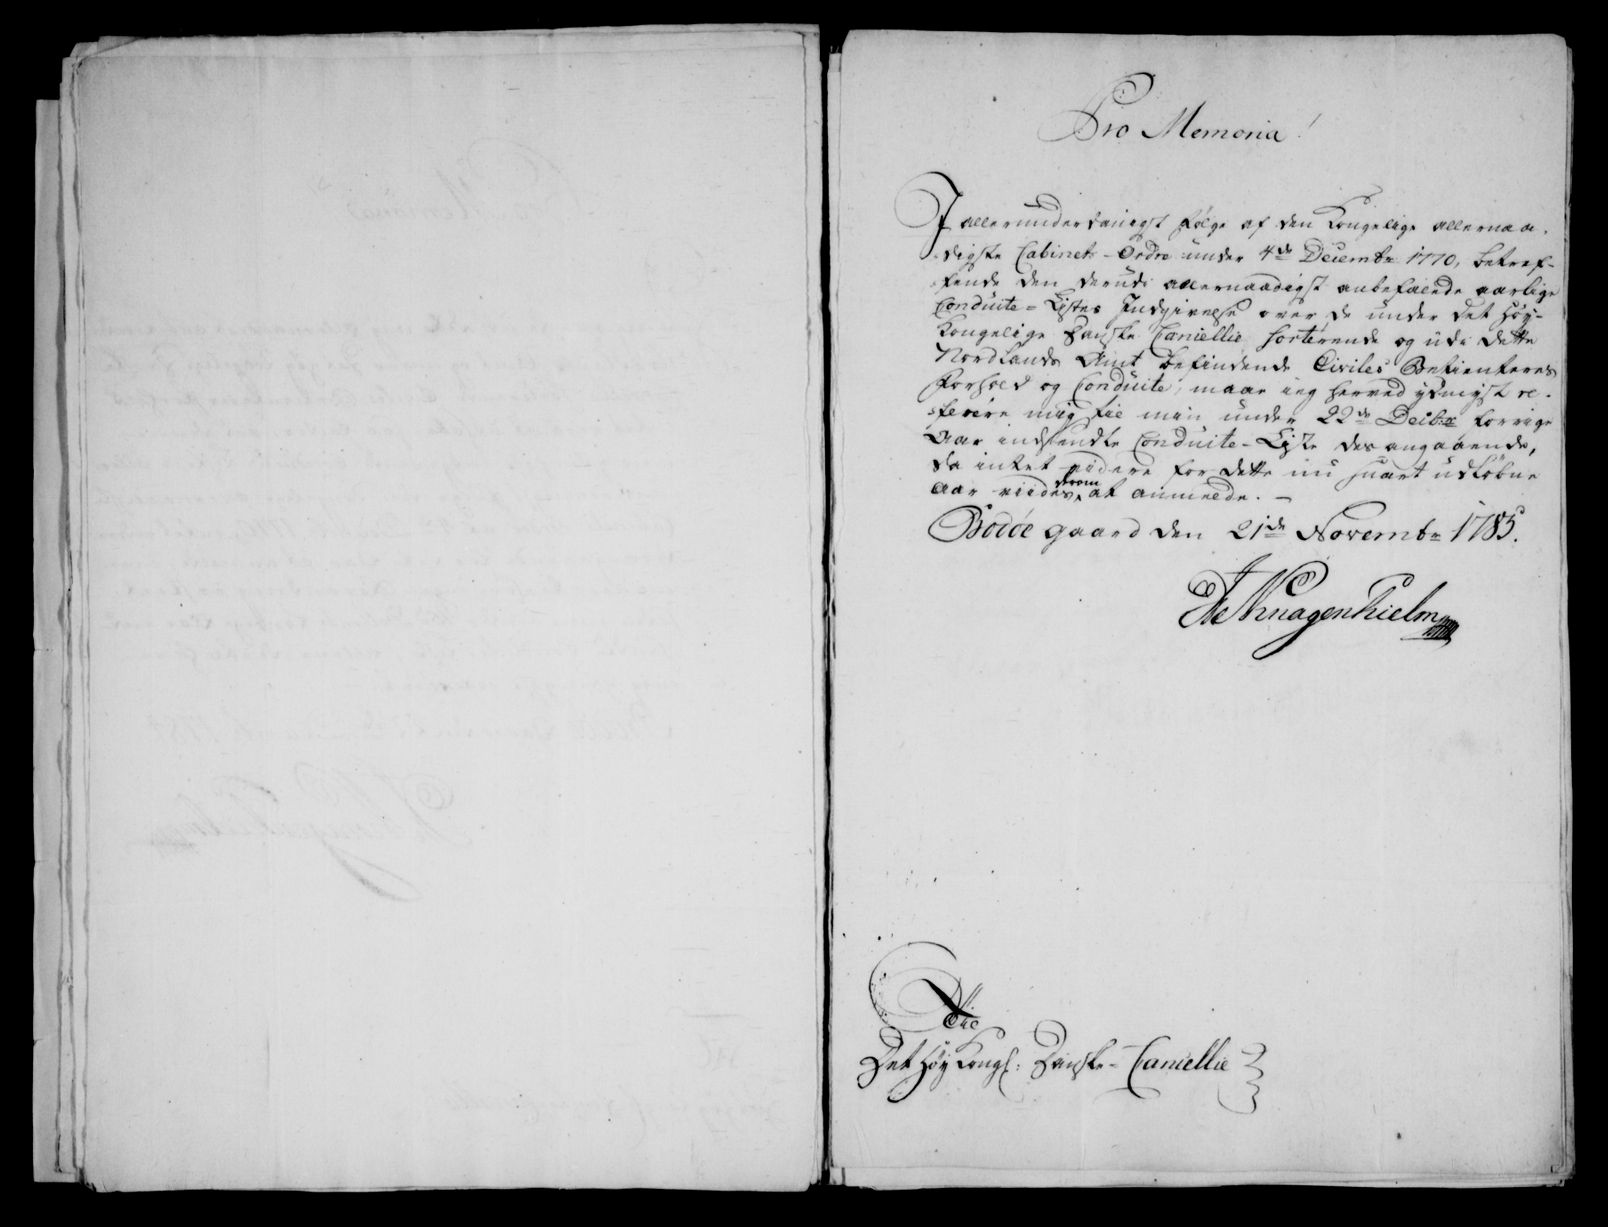 Pro Memoria!
I allerunderdanigst følge af den Kongelige allernaa-
-digste Cabinets-Ordre under 4de Decembr 1770, betref-
-fende den derudi allernaadigst anbefalede aarlige
Conduite-Listes Indgivelse over de under det Høy-
Kongelige Danske Cancellie sorterende og udi dette
Nordlands Amt befindende Civiles Betienteres
Forhold og Conduite, maae ieg herved ydmygst re-
-ferere mig til min under 22de Decbr forrige
Aar indsendte Conduite-Liste des angaaende,
da intet videre for dette nu snart udløbne
Aar viides derom at anmelde. -
Bodøe gaard den 21de Novembr 1785.
Knagenhielm
Til
Det Høy Kongl: Danske-Cancellie